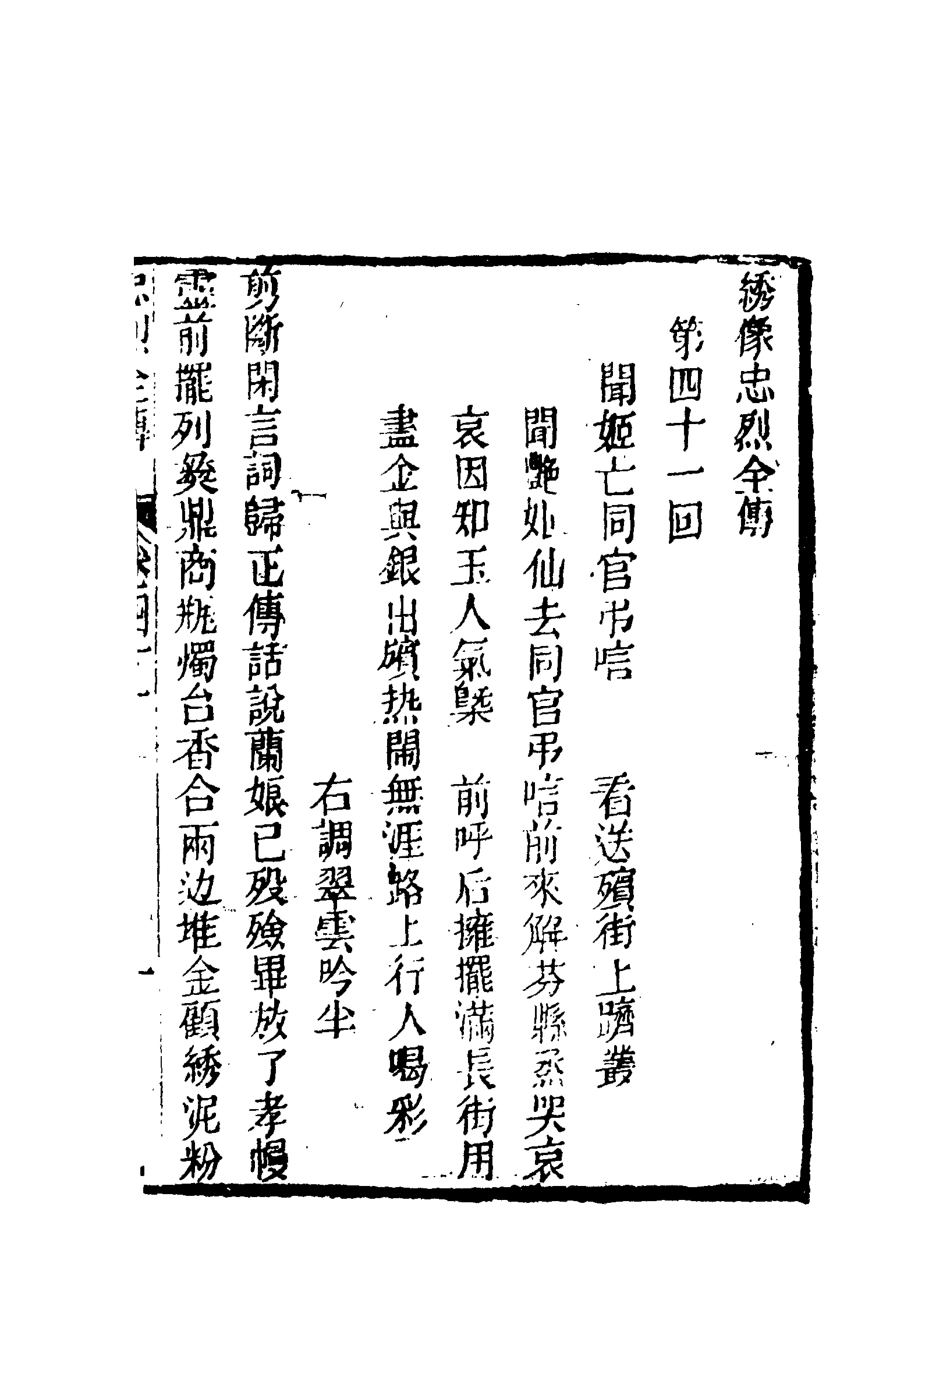 綉像忠烈全傳
第四十一回
聞姬亡同官弔唁　看送殯街上躋叢
聞艷姬仙去同官弔唁前來解芬縣丞哭哀
哀因知玉人氣槩　前呼后擁擺滿長街用
盡金與銀出殯热鬧無涯路上行人喝彩
右調翠雲吟半
剪斷閑言詞歸正傳話說蘭娘已殁殮畢放了孝幔
靈前擺列彜鼎商瓶燭台香合兩边堆金顧綉泥粉
忠烈全傳　卷四十一　一